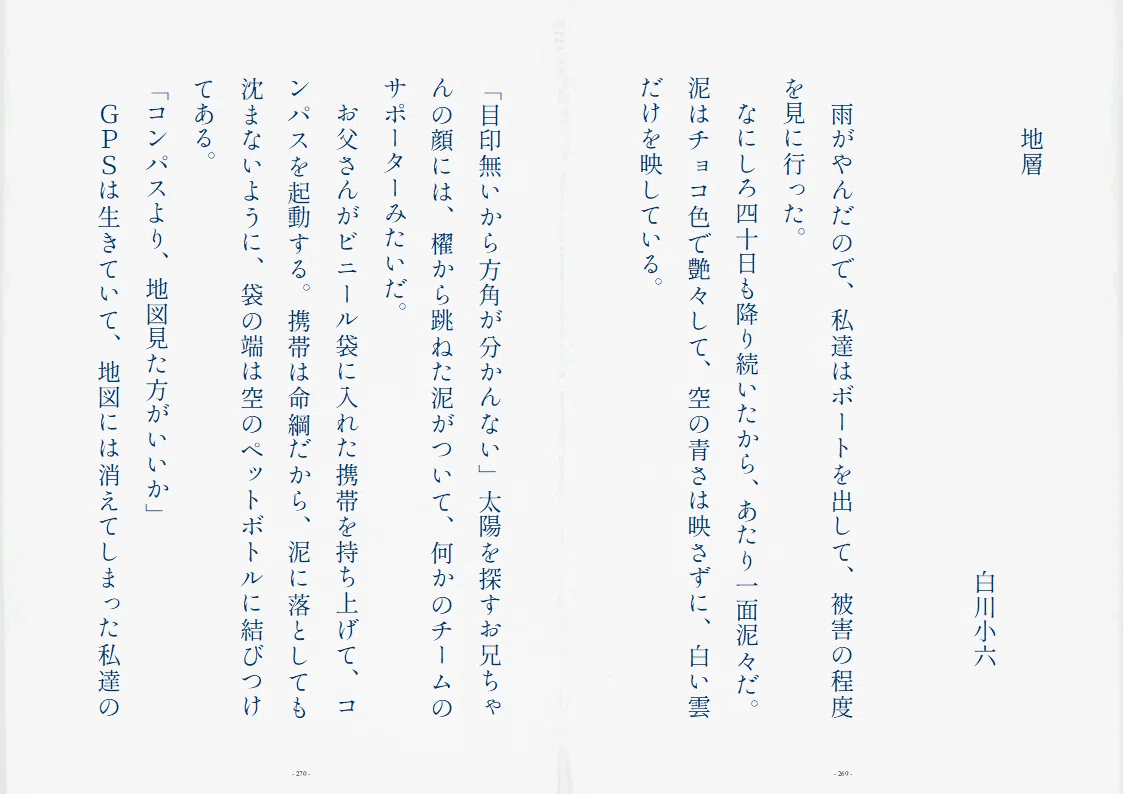 地層
白川小六
雨がやんだので、私達はボートを出して、被害の程度
を見に行った。
なにしろ四十日も降り続いたから、あたり一面泥々だ。
泥はチョコ色で艶々して、空の青さは映さずに、白い雲
だけを映している。
- 269 -
「目印無いから方角が分かんない」太陽を探すお兄ちゃ
んの顔には、櫂から跳ねた泥がついて、何かのチームの
サポーターみたいだ。
お父さんがビニール袋に入れた携帯を持ち上げて、コ
ンパスを起動する。携帯は命綱だから、泥に落としても
沈まないように、袋の端は空のペットボトルに結びつけ
てある。
「コンパスより、地図見た方がいいか」
ＧＰＳは生きていて、地図には消えてしまった私達の
- 270 -